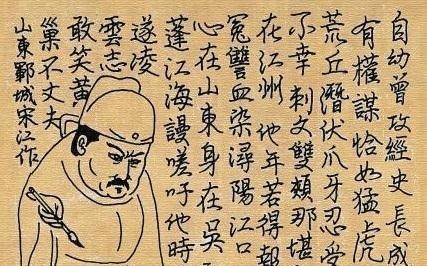 自幼曾攻經史長成
有權謀恰如猛虎
荒丘潛伏爪牙忍受
不幸刺文雙頰那堪
在江州他年若得報
冤讐血染潯陽江口
心在山東身在吳
蓬江海謾嗟吁他時
遂凌
雲志
敢笑黃
巢不丈夫
山東鄆城宋江作